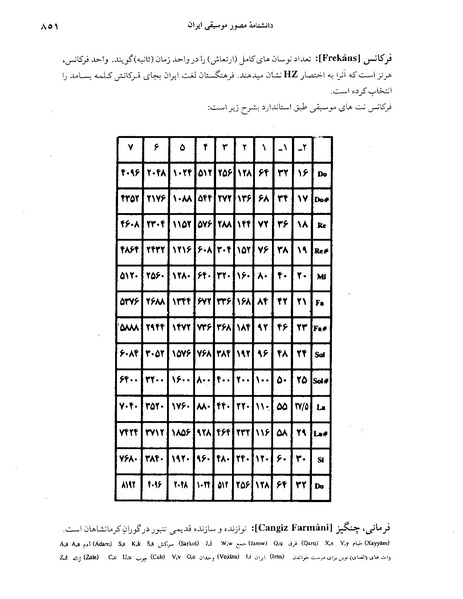 دانشنامهٔ مصور موسیقی ایران
۸۵۱
فرکانس [Frekáns]: تعداد نوسان های کامل (ارتعاش) را در واحد زمان (ثانیه) گویند. واحد فرکانس،
هرتز است که آنرا به اختصار HZ نشان میدهند. فرهنگستان لغت ایران بجای فرکانش کلمه بسامد را
انتخاب کرده است.
فرکانس نت های موسیقی طبق استاندارد بشرح زیر است:
۷ ۶ ۵ ۴ ۳ ۲ ۱ ۱_ ۲_
۴۰۹۶ ۲۰۴۸ ۱۰۲۴ ۵۱۲ ۲۵۶ ۱۲۸ ۶۴ ۳۲ ۱۶ Do
۴۳۵۲ ۲۱۷۶ ۱۰۸۸ ۵۴۴ ۲۷۲ ۱۳۶ ۶۸ ۳۴ ۱۷ Do#
۴۶۰۸ ۲۳۰۴ ۱۱۵۲ ۵۷۶ ۲۸۸ ۱۴۴ ۷۲ ۳۶ ۱۸ Re
۴۸۶۴ ۲۴۳۲ ۱۲۱۶ ۶۰۸ ۳۰۴ ۱۵۲ ۷۶ ۳۸ ۱۹ Re#
۵۱۲۰ ۲۵۶۰ ۱۲۸۰ ۶۴۰ ۳۲۰ ۱۶۰ ۸۰ ۴۰ ۲۰ Mi
۵۳۷۶ ۲۶۸۸ ۱۳۴۴ ۶۷۲ ۳۳۶ ۱۶۸ ۸۴ ۴۲ ۲۱ Fa
۵۸۸۸ ۲۹۴۴ ۱۴۷۲ ۷۳۶ ۳۶۸ ۱۸۴ ۹۲ ۴۶ ۲۳ Fa#
۶۰۸۴ ۳۰۵۲ ۱۵۷۶ ۷۶۸ ۳۸۴ ۱۹۲ ۹۶ ۴۸ ۲۴ Sol
۶۴۰۰ ۳۲۰۰ ۱۶۰۰ ۸۰۰ ۴۰۰ ۲۰۰ ۱۰۰ ۵۰ ۲۵ Sol#
۷۰۴۰ ۳۵۲۰ ۱۷۶۰ ۸۸۰ ۴۴۰ ۲۲۰ ۱۱۰ ۵۵ ۲۷/۵ La
۷۴۲۴ ۳۷۱۲ ۱۸۵۶ ۹۲۸ ۴۶۴ ۲۳۲ ۱۱۶ ۵۸ ۲۹ La#
۷۶۸۰ ۳۸۴۰ ۱۹۲۰ ۹۶۰ ۴۸۰ ۲۴۰ ۱۲۰ ۶۰ ۳۰ Si
۸۱۹۲ ۴۰۹۶ ۲۰۴۸ ۱۰۲۴ ۵۱۲ ۲۵۶ ۱۲۸ ۶۴ ۳۲ Do
فرمانی، چنگیز [Cangiz Farmáni]: نوازنده و سازنده قدیمی تنبور در گوران کرمانشاهان است.